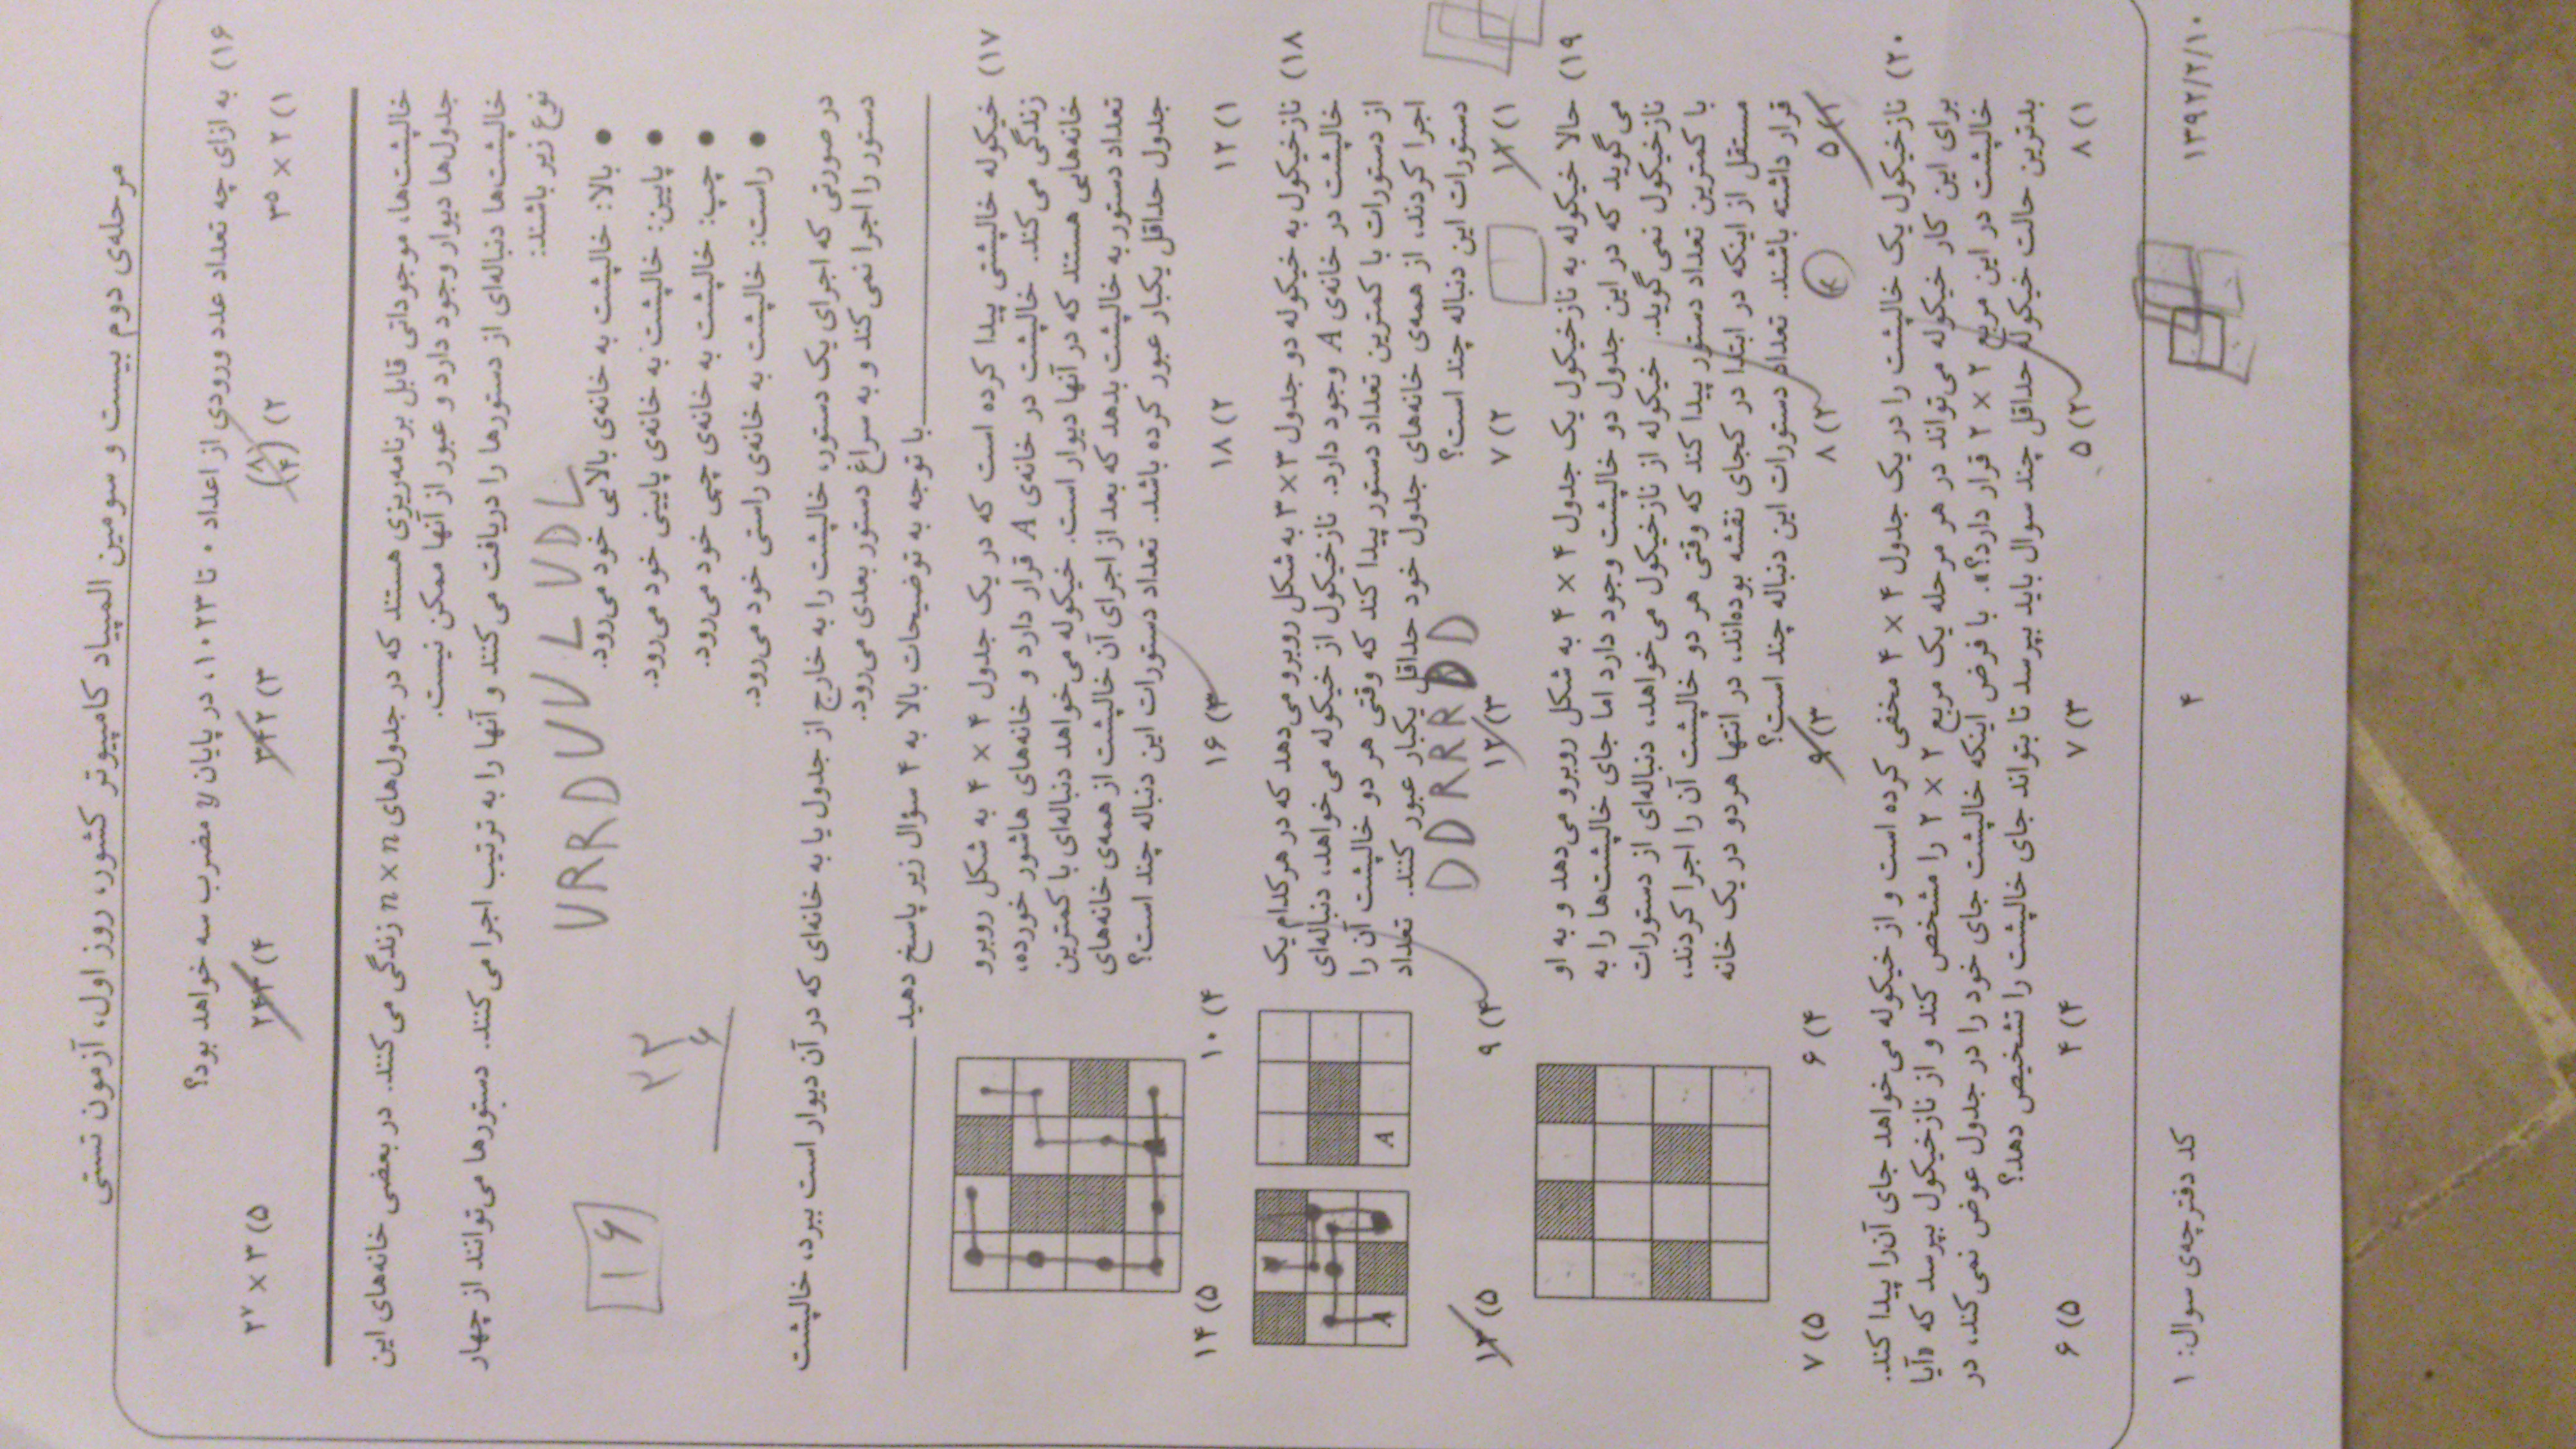 مرحله‌ی دوم بیست و سومین المپیاد کامپیوتر کشور، روز اول، آزمون تستی
۱۶) به ازای چه تعداد عدد ورودی از اعداد ۰ تا ۱۰۲۳، در پایان y مضرب سه خواهد بود؟
۱) ۲ × ۳۵ ۲) (۸ ۴) ۳) ۳۴۲ ۴) ۲۴۳ ۵) ۳ × ۲۷
خالپشت‌ها، موجوداتی قابل برنامه‌ریزی هستند که در جدول‌های n × n زندگی می‌کنند. در بعضی خانه‌های این
جدول‌ها دیوار وجود دارد و عبور از آنها ممکن نیست.
خالپشت‌ها دنباله‌ای از دستورها را دریافت می‌کنند و آنها را به ترتیب اجرا می‌کنند. دستورها می‌توانند از چهار
نوع زیر باشند:
• بالا: خالپشت به خانه‌ی بالایی خود می‌رود.
• پایین: خالپشت به خانه‌ی پایینی خود می‌رود.
• چپ: خالپشت به خانه‌ی چپی خود می‌رود.
• راست: خالپشت به خانه‌ی راستی خود می‌رود.
URRDUUULUDL
۱۶
در صورتی که اجرای یک دستور، خالپشت را به خارج از جدول یا به خانه‌ای که در آن دیوار است ببرد، خالپشت
دستور را اجرا نمی‌کند و به سراغ دستور بعدی می‌رود.
با توجه به توضیحات بالا به ۴ سؤال زیر پاسخ دهید
۱۷) خیکوله خالپشتی پیدا کرده است که در یک جدول ۴ × ۴ به شکل روبرو
زندگی می‌کند. خالپشت در خانه‌ی A قرار دارد و خانه‌های هاشور خورده،
خانه‌هایی هستند که در آنها دیوار است. خیکوله می‌خواهد دنباله‌ای با کمترین
تعداد دستور به خالپشت بدهد که بعد از اجرای آن خالپشت از همه‌ی خانه‌های
جدول حداقل یکبار عبور کرده باشد. تعداد دستورات این دنباله چند است؟
۱) ۱۲ ۲) ۱۸ ۳) ۱۶ ۴) ۱۰ ۵) ۱۴
۱۸) نازخیکول به خیکوله دو جدول ۳ × ۳ به شکل روبرو می‌دهد که در هرکدام یک
خالپشت در خانه‌ی A وجود دارد. نازخیکول از خیکوله می‌خواهد، دنباله‌ای
از دستورات با کمترین تعداد دستور پیدا کند که وقتی هر دو خالپشت آن را
اجرا کردند، از همه‌ی خانه‌های جدول خود حداقل یکبار عبور کنند. تعداد
دستورات این دنباله چند است؟
DDRRRDD
A
A
۲) ۷ ۳) ۱۲ ۴) ۹
۱۹) حالا خیکوله به نازخیکول یک جدول ۴ × ۴ به شکل روبرو می‌دهد و به او
می‌گوید که در این جدول دو خالپشت وجود دارد اما جای خالپشت‌ها را به
نازخیکول نمی‌گوید. خیکوله از نازخیکول می‌خواهد، دنباله‌ای از دستورات
با کمترین تعداد دستور پیدا کند که وقتی هر دو خالپشت آن را اجرا کردند،
مستقل از اینکه در ابتدا در کجای نقشه بوده‌اند، در انتها هردو در یک خانه
قرار داشته باشند. تعداد دستورات این دنباله چند است؟
۱) ۵ ۲) ۸ ۳) ۹ ۴) ۶ ۵) ۷
۲۰) نازخیکول یک خالپشت را در یک جدول ۴ × ۴ مخفی کرده است و از خیکوله می‌خواهد جای آن‌را پیدا کند.
برای این کار خیکوله می‌تواند در هر مرحله یک مربع ۲ × ۲ را مشخص کند و از نازخیکول بپرسد که «آیا
خالپشت در این مربع ۲ × ۲ قرار دارد؟». با فرض اینکه خالپشت جای خود را در جدول عوض نمی‌کند، در
بدترین حالت خیکوله حداقل چند سوال باید بپرسد تا بتواند جای خالپشت را تشخیص دهد؟
۱) ۸ ۲) ۵ ۳) ۷ ۴) ۴ ۵) ۶
۱۳۹۲/۲/۱۰ ۴ کد دفترچه‌ی سوال: ۱